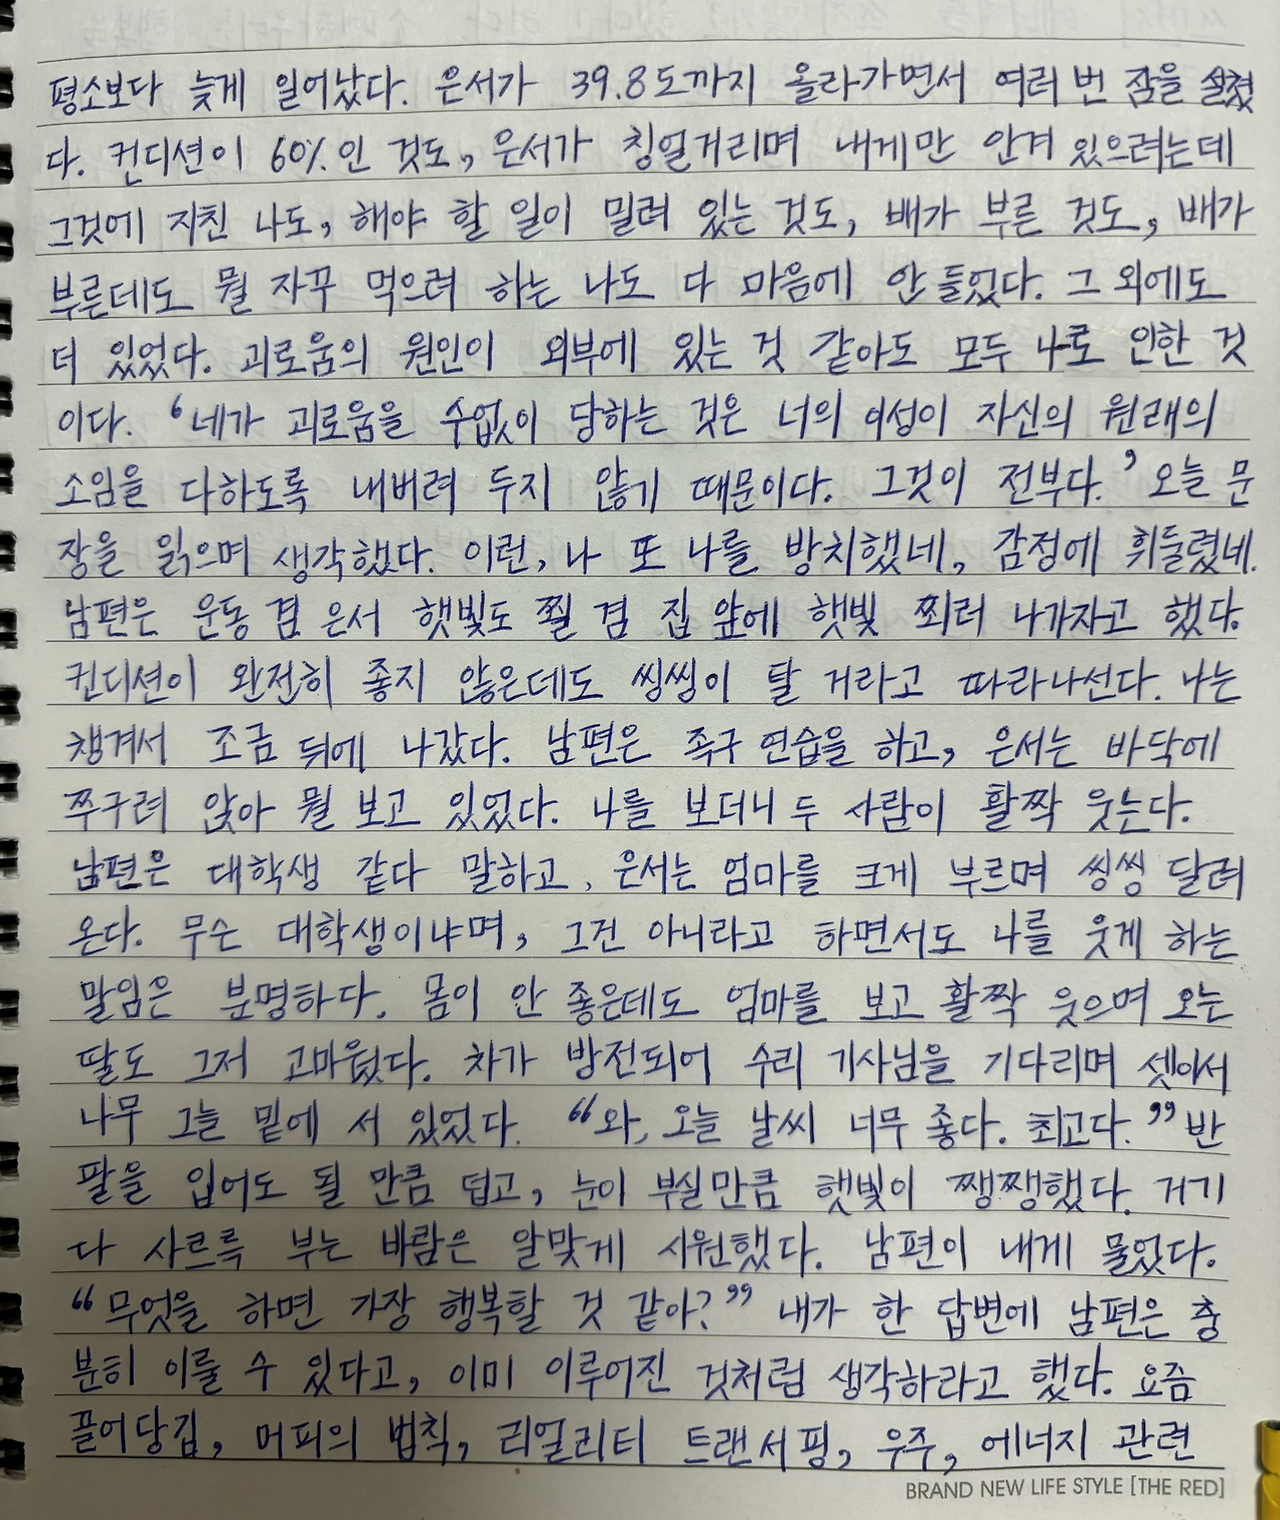 평소보다 늦게 일어났다. 은서가 39.8도까지 올라가면서 여러 번 잠을 설쳤
다. 컨디션이 60%인 것도, 은서가 칭얼거리며 내게만 안겨 있으려는데
그것에 지친 나도, 해야 할 일이 밀려 있는 것도, 배가 부른 것도, 배가
부른데도 뭘 자꾸 먹으려 하는 나도 다 마음에 안 들었다. 그 외에도
더 있었다. 괴로움의 원인이 외부에 있는 것 같아도 모두 나로 인한 것
이다. ‘네가 괴로움을 수없이 당하는 것은 너의 이성이 자신의 원래의
소임을 다하도록 내버려 두지 않기 때문이다. 그것이 전부다.’ 오늘 문
장을 읽으며 생각했다. 이런, 나 또 나를 방치했네, 감정에 휘둘렸네.
남편은 운동 겸 은서 햇빛도 쬘 겸 집 앞에 햇빛 쬐러 나가자고 했다.
컨디션이 완전히 좋지 않은데도 씽씽이 탈 거라고 따라나선다. 나는
챙겨서 조금 뒤에 나갔다. 남편은 족구 연습을 하고, 은서는 바닥에
쭈구려 앉아 뭘 보고 있었다. 나를 보더니 두 사람이 활짝 웃는다.
남편은 대학생 같다 말하고, 은서는 엄마를 크게 부르며 씽씽 달려
온다. 무슨 대학생이냐며, 그건 아니라고 하면서도 나를 웃게 하는
말임은 분명하다. 몸이 안 좋은데도 엄마를 보고 활짝 웃으며 오는
딸도 그저 고마웠다. 차가 방전되어 수리 기사님을 기다리며 셋이서
나무 그늘 밑에 서 있었다. “와, 오늘 날씨 너무 좋다. 최고다.” 반
팔을 입어도 될 만큼 덥고, 눈이 부실만큼 햇빛이 쨍쨍했다. 거기
다 사르륵 부는 바람은 알맞게 시원했다. 남편이 내게 물었다.
“무엇을 하면 가장 행복할 것 같아?” 내가 한 답변에 남편은 충
분히 이룰 수 있다고, 이미 이루어진 것처럼 생각하라고 했다. 요즘
끌어당김, 머피의 법칙, 리얼리티 트랜서핑, 우주, 에너지 관련
BRAND NEW LIFE STYLE [THE RED]